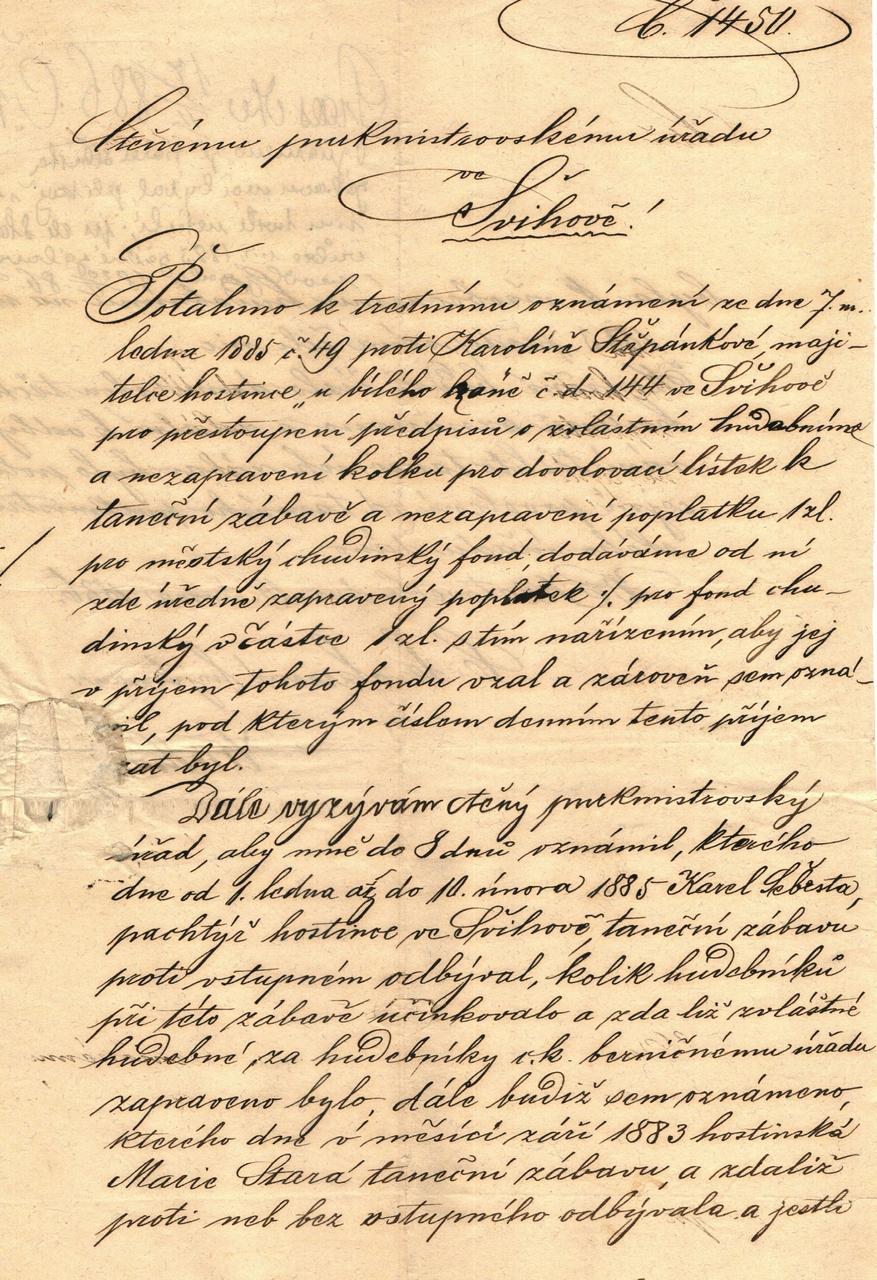 Č. 1450.
Ctěnému purkmistrovskému úřadu
ve
Švihově!
Potahmo k trestnímu oznámení ze dne 7. m.
ledna 1885 č. 49 proti Karolině Štěpánkové, maji-
telce hostince „u bílého koně č. d. 144 ve Švihově
pro přestoupení předpisů o zvlástním hudebním
a nezapravení kolku pro dovolovací lístek k
taneční zábavě a nezapravení poplatku 1 zl.
pro městský chudinský fond, dodáváme od ní
zde úředně zapravený poplatek ./. pro fond chu-
dinský v částce 1 zl. s tím nařízením, aby jej
v příjem tohoto fondu vzal a zároveň sem ozná-
mil, pod kterým číslem denním tento příjem
zat byl.
Dále vyzývám ctěný purkmistrovský
úřad, aby mně do 8 dnů oznámil, kterého
dne od 1. ledna až do 10. února 1885 Karel Šebesta,
pachtýř hostince ve Švihově, taneční zábavu
proti vstupném odbýval, kolik hudebníků
při této zábavě účinkovalo a zda liž zvláštné
hudebné, za hudebníky c. k. berničnému úřadu
zapraveno bylo, dále budiž sem oznámeno,
kterého dne v měsíci září 1883 hostinská
Marie Stará taneční zábavu, a zdaliž
proti neb bez vstupného odbývala a jestli